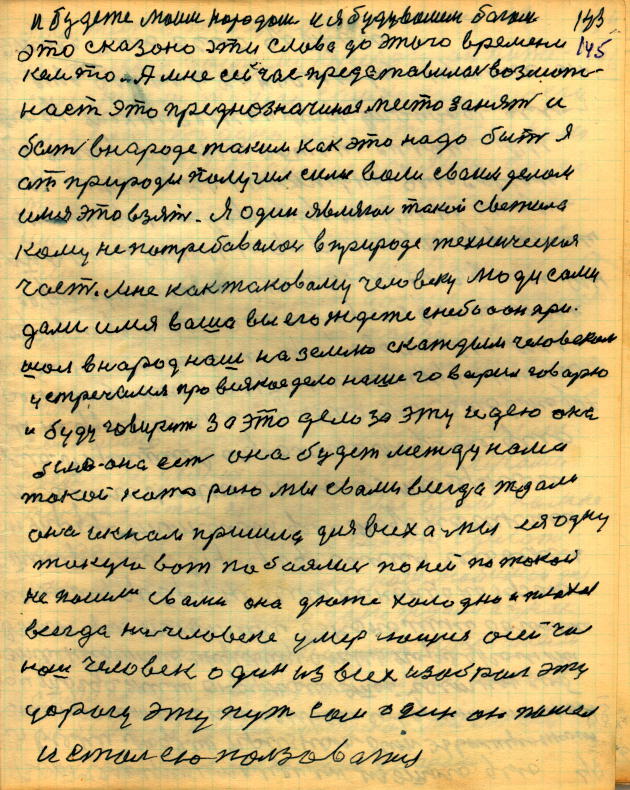 и будете моим народом и я буду вашим богом 143
это сказоно эти слова до этого времени 145
кем то. А мне сейчас представилась возмож-
ность это предназначиная место занят и
быт в народе таким как это надо быт Я
от природы получил силы воли своим делом
имя это взят. Я один являюся такой светила
кому не потребавалос в природе техническая
част. мне как таковому человеку люди сами
дали имя ваша вы его ждете с неба а он при-
шол в народ наш на землю с каждым человеком
устречался про всякае дело наше говарил говарю
и буду говорит за это дело за эту идею она
была она ест она будет между нами
такой которою мы с вами всегда ждали
она и к нам пришла для всех а мы ея одну
такую вот побоялис по ней по такой
не пошли с вами она дюже холодно и плохая
всегда на человеке умирающия а сейчас
наш человек один из всех избрал эту
дорогу эту пут сам один он пошел
и стал ею ползоватя